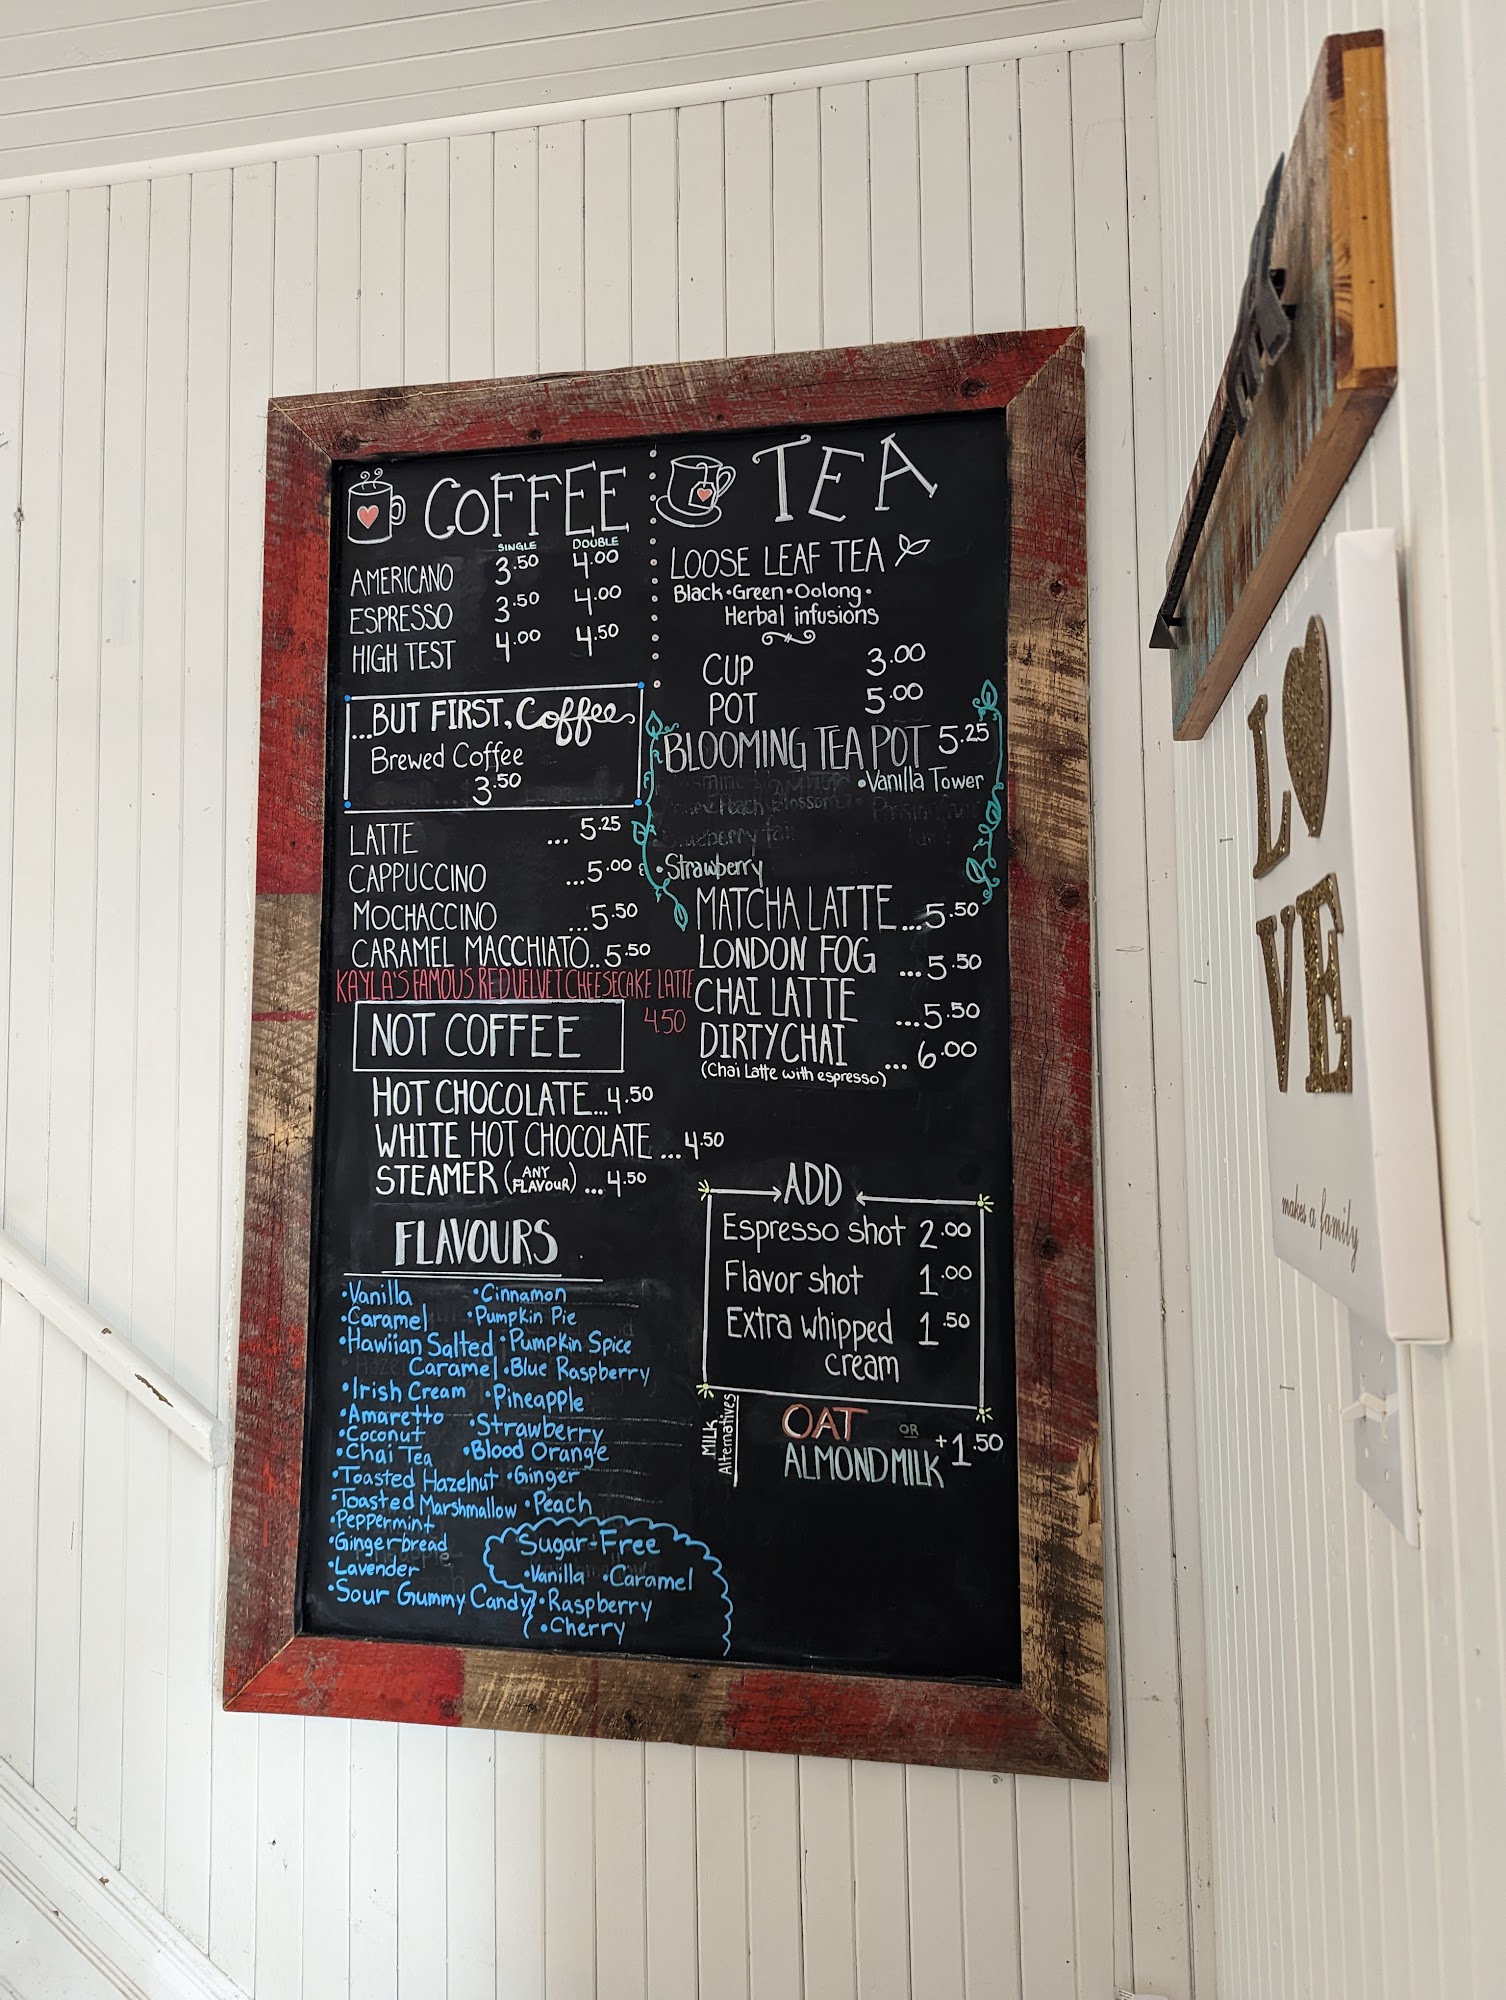 COFFEE
SINGLE DOUBLE
AMERICANO 3.50 4.00
ESPRESSO 3.50 4.00
HIGH TEST 4.00 4.50
...BUT FIRST, Coffee
Brewed Coffee
3.50
LATTE ... 5.25
CAPPUCCINO ...5.00
MOCHACCINO ...5.50
CARAMEL MACCHIATO...5.50
KAYLA'S FAMOUS RED VELVET CHEESECAKE LATTE
4.50
NOT COFFEE
HOT CHOCOLATE...4.50
WHITE HOT CHOCOLATE ...4.50
STEAMER (ANY FLAVOUR) ...4.50
FLAVOURS
•Vanilla
•Caramel
•Hawiian Salted
Caramel
•Irish Cream
•Amaretto
•Coconut
•Chai Tea
•Toasted Hazelnut
•Toasted Marshmallow
•Peppermint
•Gingerbread
•Lavender
•Sour Gummy Candy
•Cinnamon
•Pumpkin Pie
•Pumpkin Spice
•Blue Raspberry
•Pineapple
•Strawberry
•Blood Orange
•Ginger
•Peach
Sugar-Free
•Vanilla •Caramel
•Raspberry
•Cherry
TEA
LOOSE LEAF TEA
Black•Green•Oolong•
Herbal infusions
CUP 3.00
POT 5.00
BLOOMING TEA POT 5.25
•Vanilla Tower
•Strawberry
MATCHA LATTE...5.50
LONDON FOG ...5.50
CHAI LATTE ...5.50
DIRTY CHAI ... 6.00
(Chai Latte with espresso)
ADD
Espresso shot 2.00
Flavor shot 1.00
Extra whipped 1.50
cream
MILK
Alternatives
OAT OR
ALMOND MILK +1.50
LOVE
makes a family